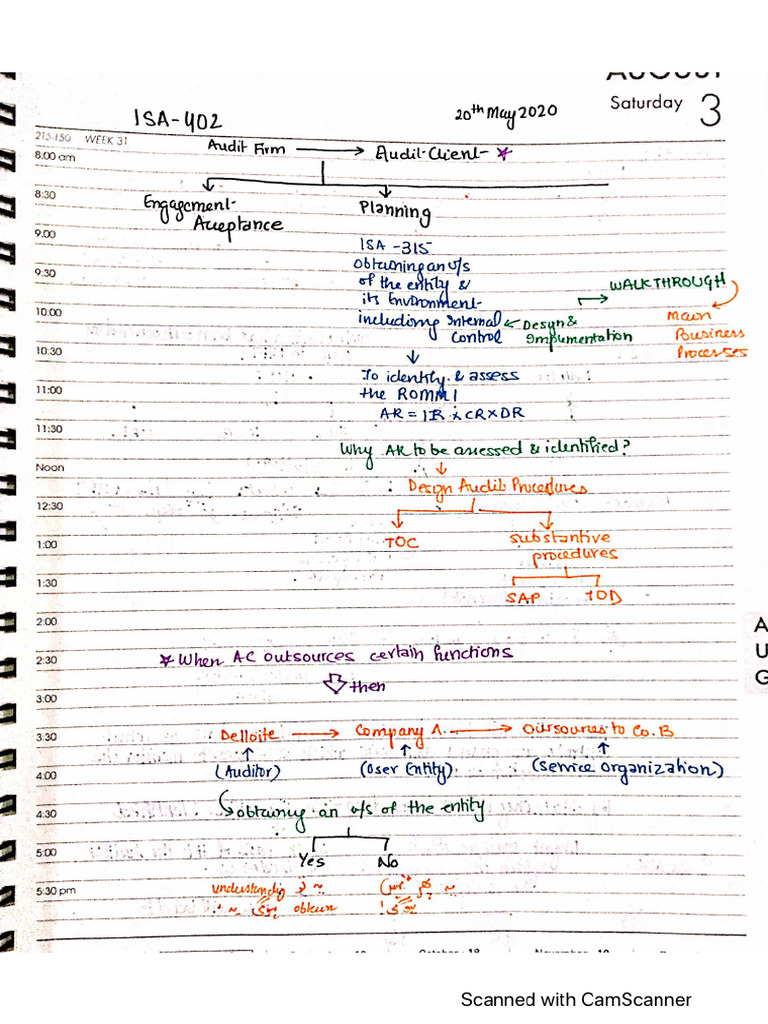 AUGUST
Saturday 3
ISA-402
20th May 2020
215-150 WEEK 31
Audit Firm → Audit Client *
8:00 am
8:30
Engagement Acceptance
Planning
9.00
ISA-315
obtaining an u/s
9:30
of the entity &
WALKTHROUGH
its Environment
10:00
including Internal
Control
Design &
Implimentation
Main
Business
Processes
10:30
To identify & assess
11:00
the ROMM
AR = IR x CR x DR
11:30
Why AR to be assessed & identified?
Noon
Design Audit Procedures
12:30
1:00
TOC
substantive
procedures
1:30
SAP TOD
2:00
A
U
G
2:30
* When AC outsources certain functions
then
3:00
3:30
Delloite → Company A. → Outsources to Co. B
4:00
(Auditor) (User Entity) (Service Organization)
4:30
obtaining an u/s of the entity
5:00
Yes No
5:30 pm
understanding
obtain
Scanned with CamScanner